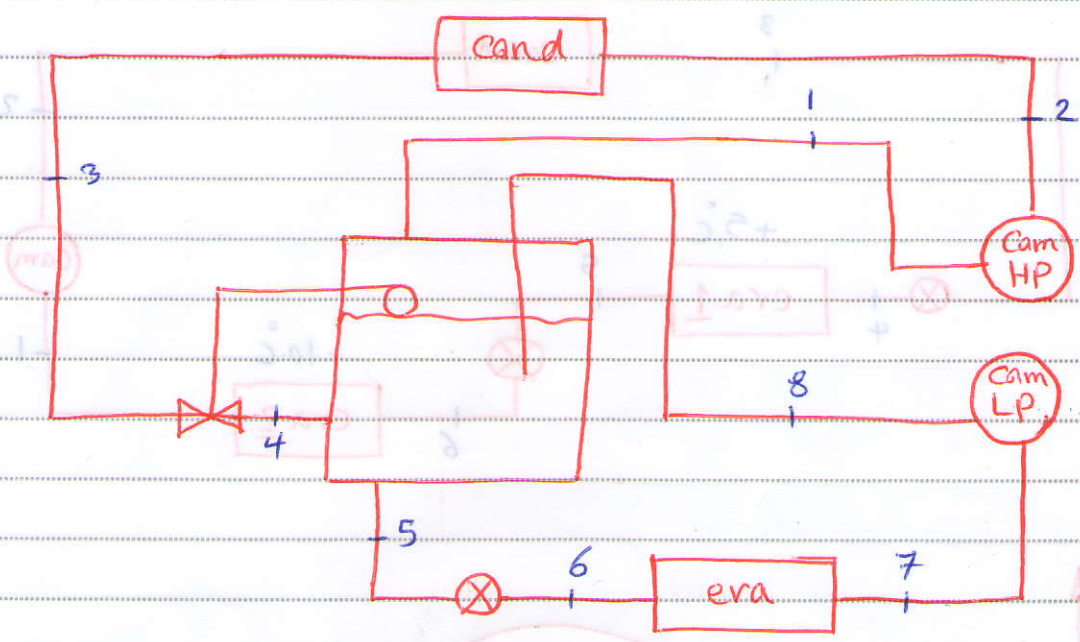 cond
1
2
3
Com
HP
Com
LP
8
4
5
6
7
eva